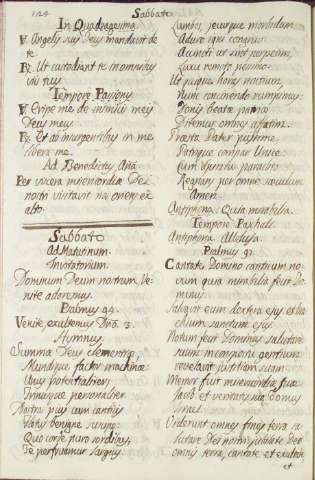 124
Sabbato
In Quadragesima.
℣. Angelis suis Deus mandavit de
te.
℟. Ut custodiant te in omnibus
viis tuis.
Tempore Passionis
℣. Eripe me de inimicis meis
Deus meus.
℟. Et ab insurgentibus in me
libera me.
Ad Benedictus Ana.
Per viscera misericordiæ Dei
nostri visitavit nos oriens ex
alto.
Sabbato
Ad Matutinum.
Invitatorium.
Dominum Deum nostrum. Ve-
nite adoremus.
Psalmus 94.
Venite exultemus Dño.
Hymnus.
Summæ Deus clementiæ
Mundique factor machinæ
Unus potentialiter,
Trinusque personaliter
Nostros pius cum canticis
Fletus benigne
Quo corde puro sordibus,
Te perfruamur largius.
Lumbos, jecurque morbidum
Adure igni congruo
Accincti ut sint perpetim,
Luxu remoto pessimo.
Ut quique horas noctium
Nunc concinendo rumpimus:
Donis beatæ patriæ
Ditemur omnes affatim.
Præsta Pater piissime
Patrique compar Unice
Cum Spiritu paraclito
Regnans per omne sæculum
Amen.
Antiphona. Quia mirabilia.
Tempore Paschali
Antiphona Alleluja.
Psalmus 97.
Cantate Domino canticum no-
vum quia mirabilia fecit Do-
minus.
Salvavit eum dextera ejus et bra-
chium sanctum ejus
Notum fecit Dominus salutare
suum in conspectu gentium
revelavit justitiam suam
Memor fuit misericordiæ suæ
Jacob et veritatis suæ domui
Israel.
Viderunt omnes fines terræ sa-
lutare Dei nostri jubilate Deo
omnis terra, cantate et exultate
et